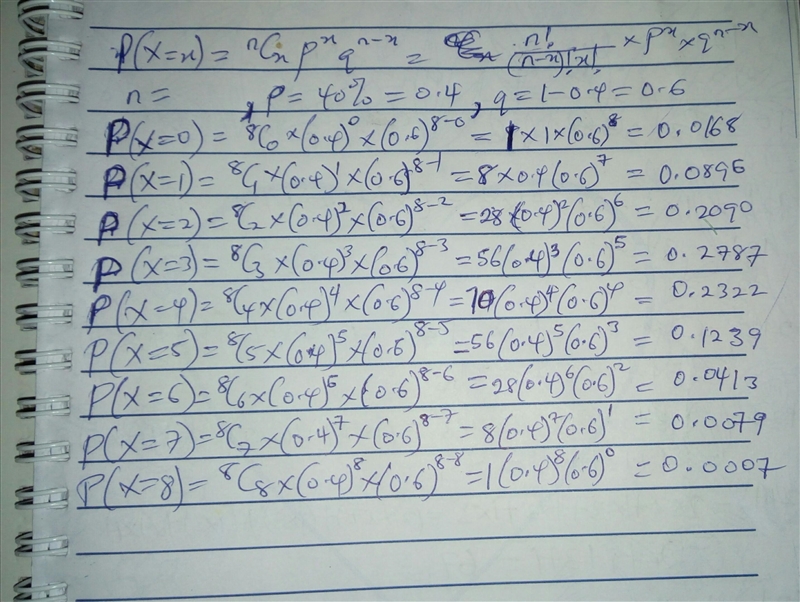 P(X=x) = ⁿCₓ pˣ qⁿ⁻ˣ = n!/(n-x)!x! × pˣ × qⁿ⁻ˣ
n = , p = 40% = 0.4, q = 1-0.4 = 0.6
P(X=0) = ⁸C₀ × (0.4)⁰ × (0.6)⁸⁻⁰ = 1 × 1 × (0.6)⁸ = 0.0168
P(X=1) = ⁸C₁ × (0.4)¹ × (0.6)⁸⁻¹ = 8 × 0.4 (0.6)⁷ = 0.0896
P(X=2) = ⁸C₂ × (0.4)² × (0.6)⁸⁻² = 28 (0.4)² (0.6)⁶ = 0.2090
P(X=3) = ⁸C₃ × (0.4)³ × (0.6)⁸⁻³ = 56 (0.4)³ (0.6)⁵ = 0.2787
P(X=4) = ⁸C₄ × (0.4)⁴ × (0.6)⁸⁻⁴ = 70 (0.4)⁴ (0.6)⁴ = 0.2322
P(X=5) = ⁸C₅ × (0.4)⁵ × (0.6)⁸⁻⁵ = 56 (0.4)⁵ (0.6)³ = 0.1239
P(X=6) = ⁸C₆ × (0.4)⁶ × (0.6)⁸⁻⁶ = 28 (0.4)⁶ (0.6)² = 0.0413
P(X=7) = ⁸C₇ × (0.4)⁷ × (0.6)⁸⁻⁷ = 8 (0.4)⁷ (0.6)¹ = 0.0079
P(X=8) = ⁸C₈ × (0.4)⁸ × (0.6)⁸⁻⁸ = 1 (0.4)⁸ (0.6)⁰ = 0.0007